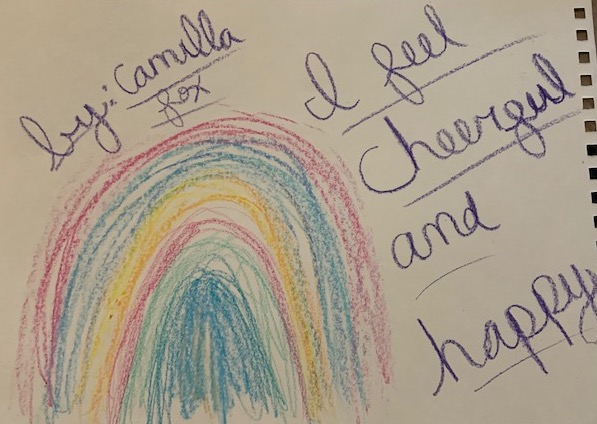 by: Camilla
fox
I feel
Cheergul
and
happy